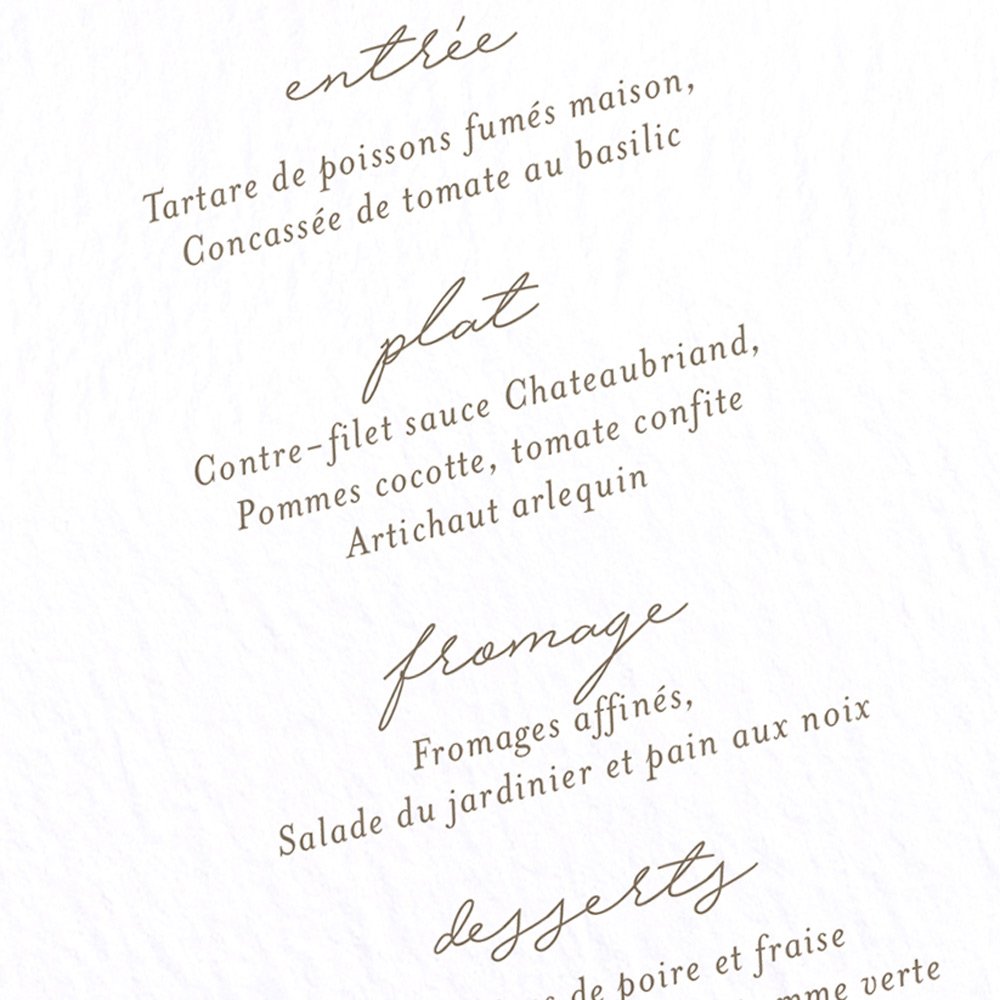 entrée
Tartare de poissons fumés maison,
Concassée de tomate au basilic
plat
Contre-filet sauce Chateaubriand,
Pommes cocotte, tomate confite
Artichaut arlequin
fromage
Fromages affinés,
Salade du jardinier et pain aux noix
desserts
de poire et fraise
verte